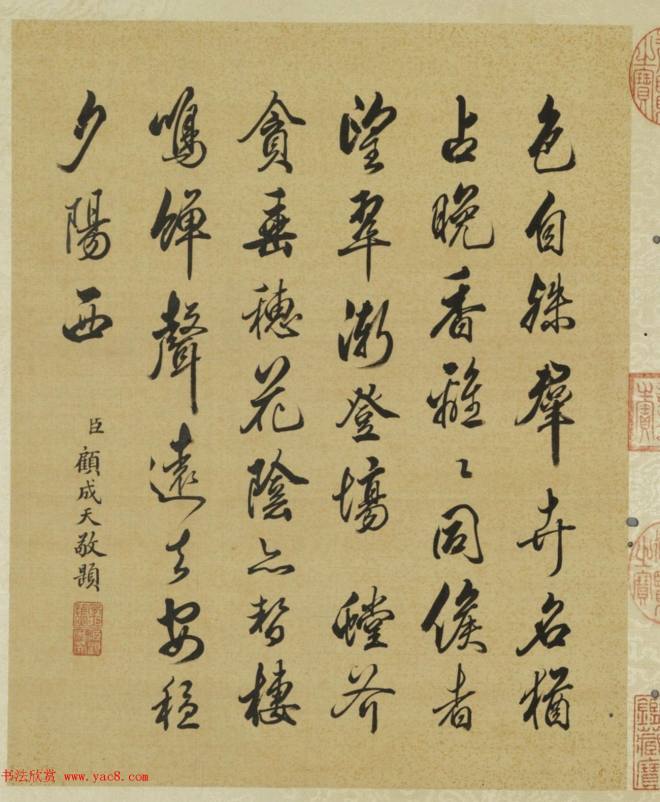 色自殊群卉名猶
占晚香離〻同候者
望翠漸登場 螗斧
貪垂穗花陰亦暫棲
鳴蟬聲遠去安穩
夕陽西
臣顧成天敬題
书法欣赏 www.yac8.com